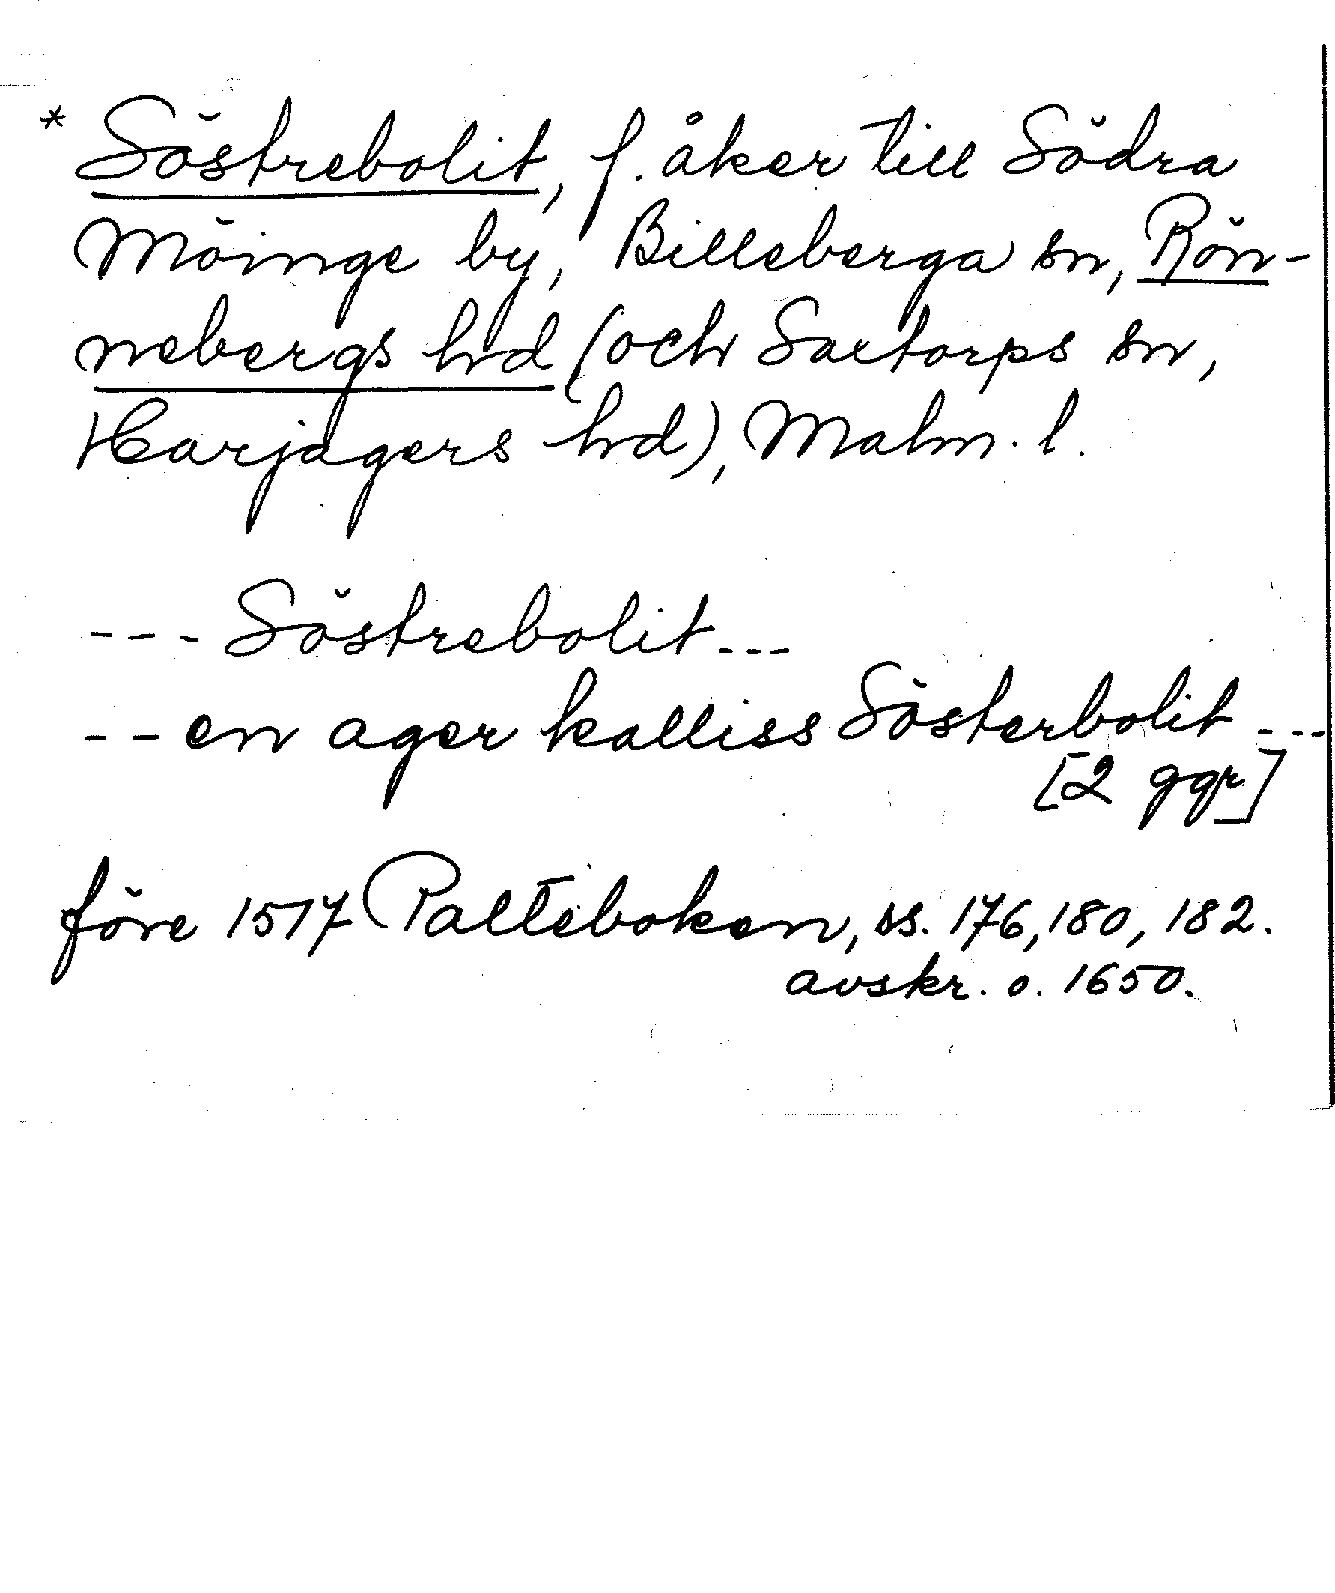 * Söstrebolit, f. åker till Södra
Möinge by, Billeberga sn, Rön-
nebergs hrd (och Saxtorps sn,
Harjagers hrd), Malm. l.
--- Söstrebolit ---
-- en ager kalliss Sösterbolit ---
[2 ggr]
före 1517 Palteboken, ss. 176, 180, 182.
avskr. o. 1650.